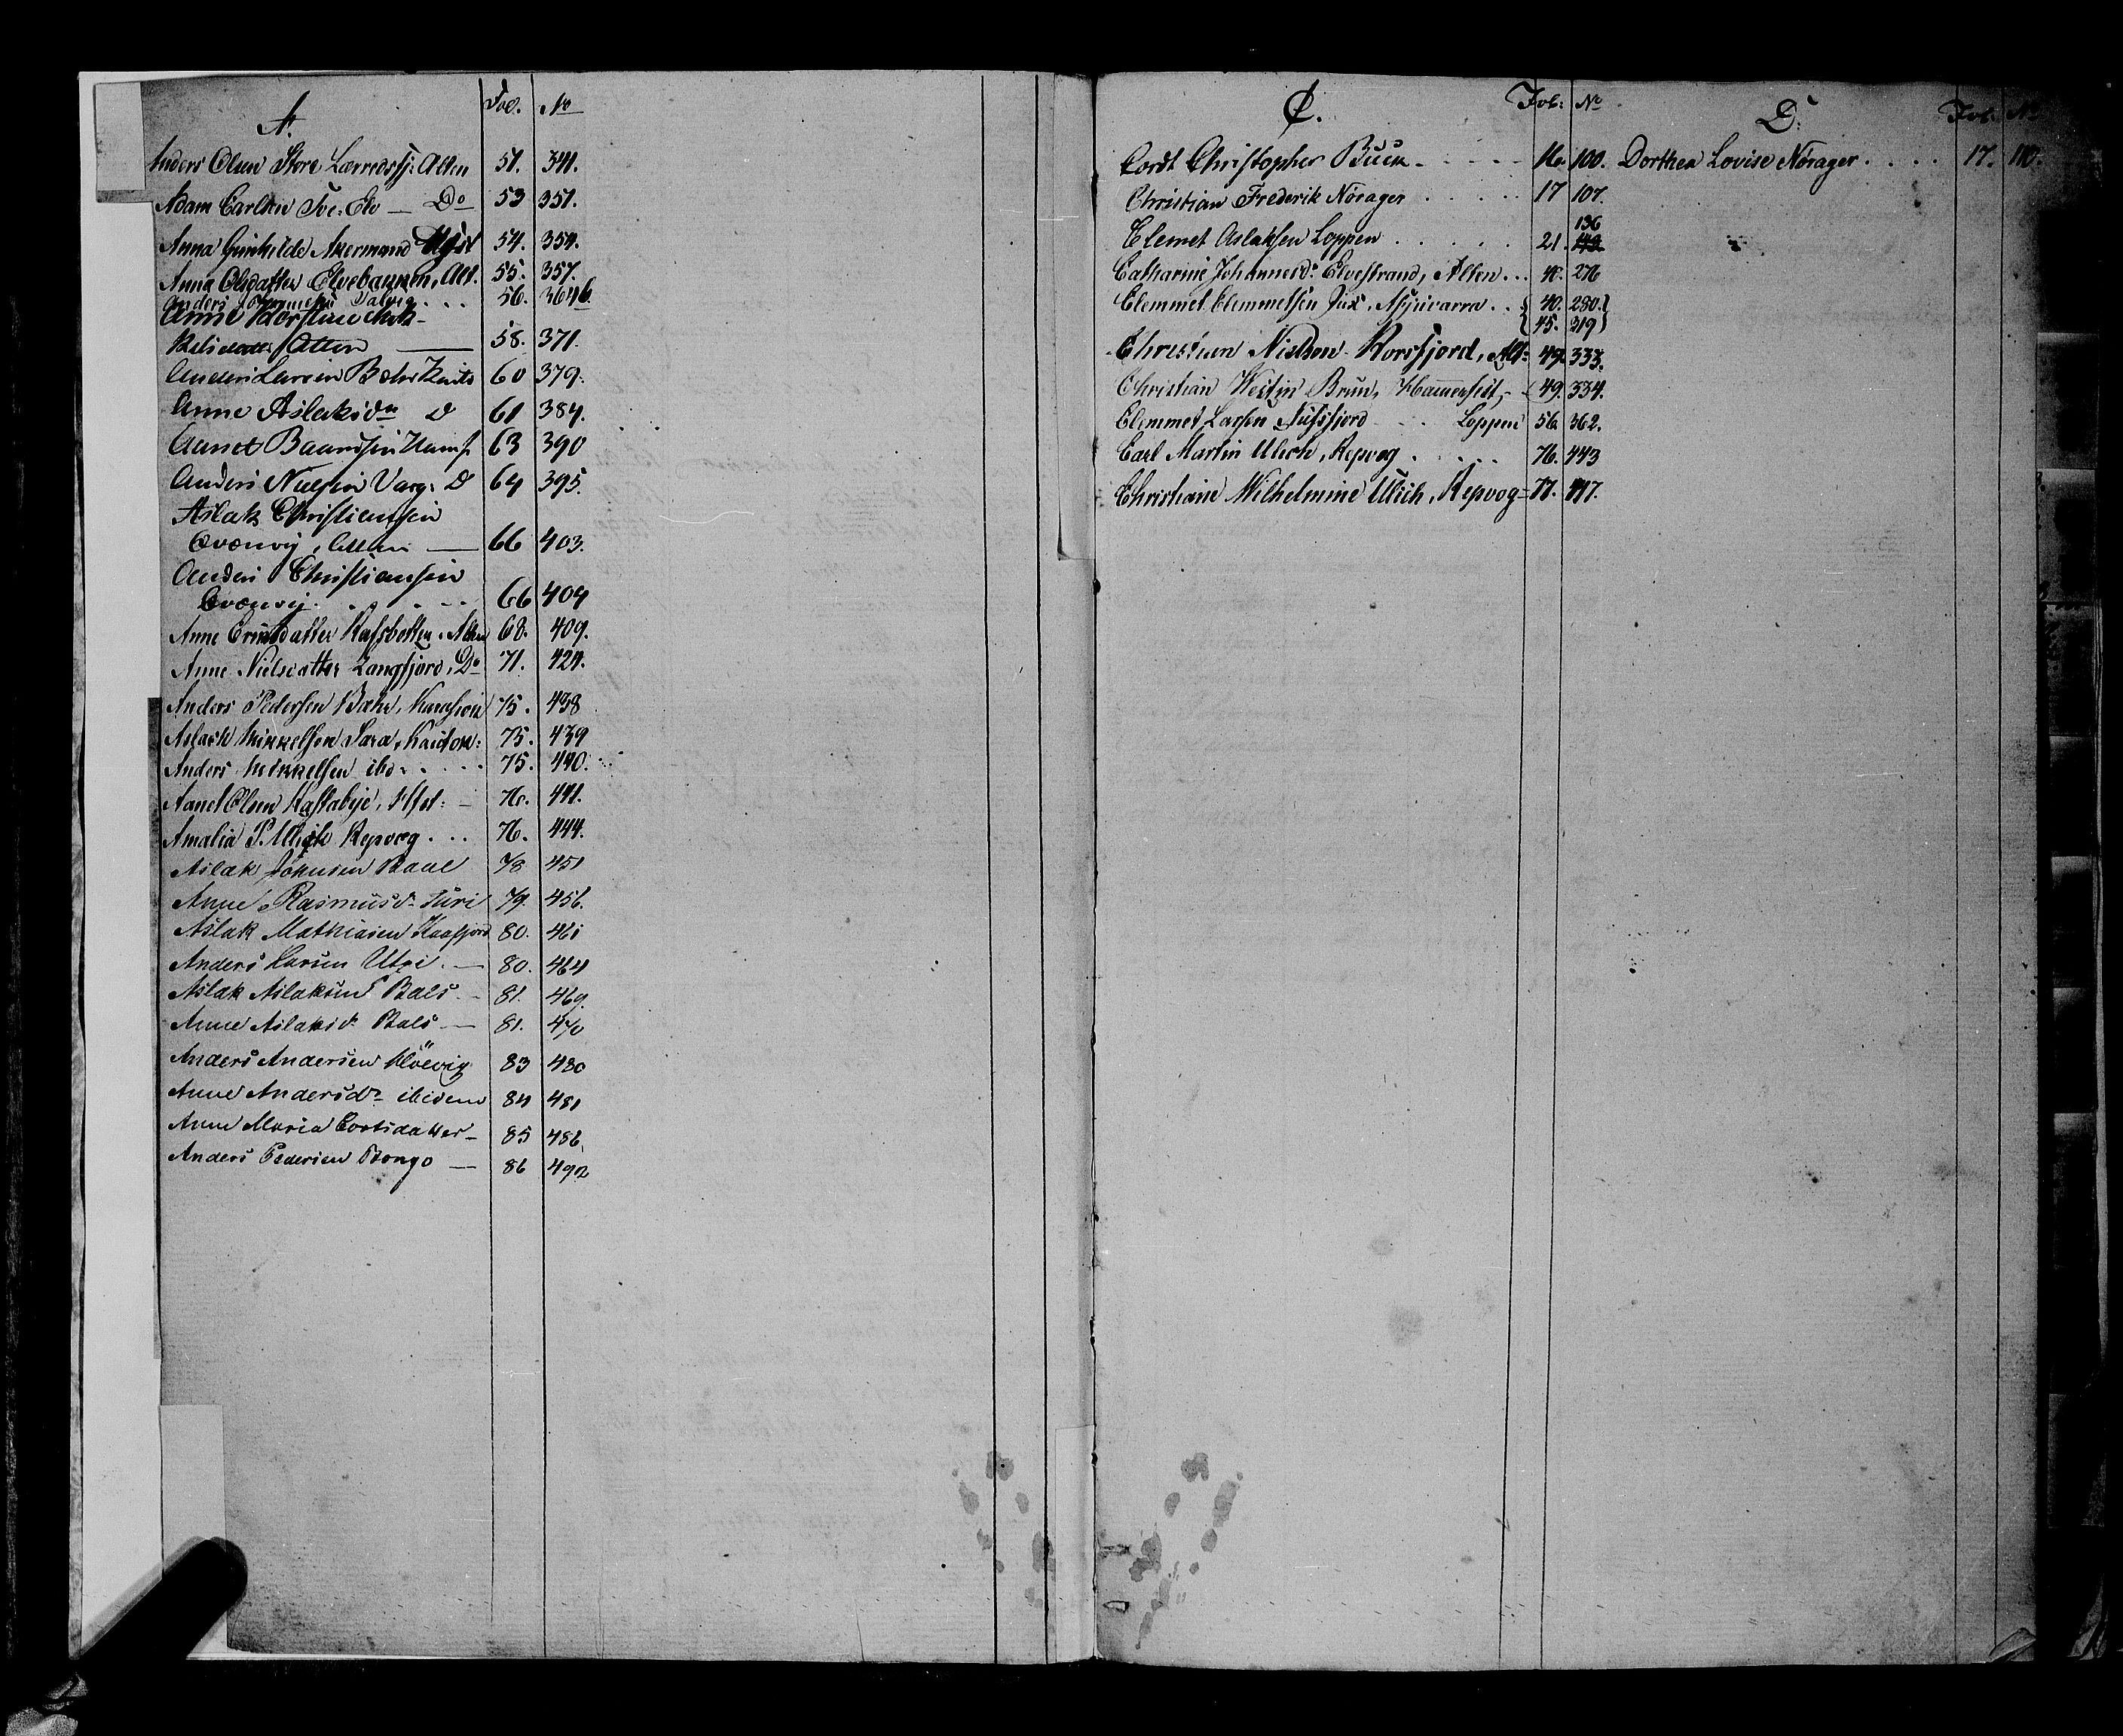 A.
Fol. No
Anders Olsen Store Lerredsfj: Alten 51. 341.
Adam Carlsen Tve-Elv — Do 53 351.
Anna Gunhilde Akermand 54. 354.
Anna Olsdatter Elvebaknen, Alt. 55. 357.
Anders Talvig . . . 56. 364b
Anne Kirstine
Nilsdatt: Alten — 58. 371
Anders Larsen Bæhr Kauto 60 379.
Anne Aslaksdr D 61 384.
Aanet Baardsen Hamf. 63 390
Anders Nielsen Varg. D 64 395.
Aslak Christiansen
Qvænvig, Alten — 66 403.
Anders Christiansen
Qvænvig. . . . . 66 404
Anne Ericsdatter Rafsbotten, Alten 68. 409.
Anne Nielsdatter Langfjord, Do 71. 424.
Anders Pedersen Bæhr, Karasjok 75. 438
Aslach Mikkelsen Sara, Kautok: 75. 439
Anders Mikkelsen ibd. . . . 75. 440.
Aanet Olsen Kastabye, Hfst: — 76. 441.
Amalia P. Ulich Repvog . . . 76. 444.
Aslak Johnsen Baal 78 451
Anne Rasmusdr Juri 79. 456.
Aslak Mathiasen Kaafjord 80. 461
Anders Larsen Utsi. — 80. 464
Aslak Aslaksen Bals — 81. 469.
Anne Aslaksdr Bals — 81. 470
Anders Andersen Kløvvig 83 480
Anne Andersdr ibidem 84 481
Anne Maria Cortsdatter — 85 486.
Anders Pedersen Bongo — 86 492
C.
Fol: No
Cordt Christopher Buck - - - - - 16. 100.
Christian Frederik Nörager . . . . . 17 107.
136
Clemet Aslaksen Loppen . . . . . 21. 143.
Catharine Johannesdr Elvestrand, Alten . . . 40. 276
Clemmet Clemmetsen Jux, Assjuvarra . . { 40. 280. }
{ 45. 319 }
Christian Nielsen Korsfjord, Alt: 49. 333.
Christian Westin Brun, Hammerfest, - 49. 334.
Clemmet Larsen Nufsfjord - - - Loppen 56. 362.
Carl Martin Ulich, Repvog . . . . . 76. 443
Christiane Wilhelmine Ulich, Repvog 77. 447.
D.
Fol. No
Dorthea Lovise Nörager . . . . 17. 110.